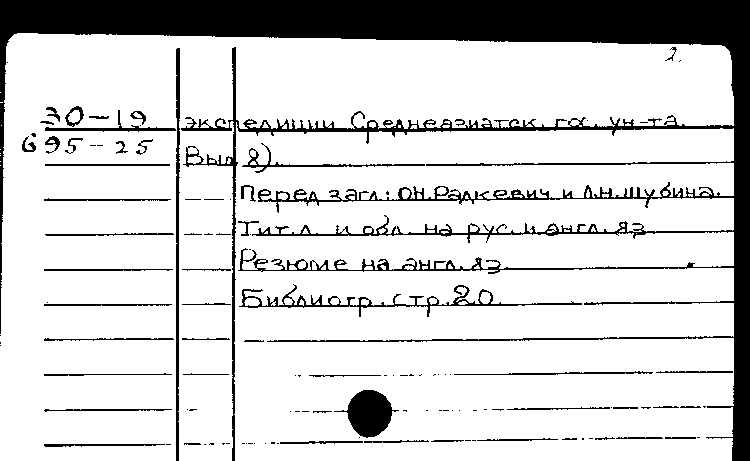 2.
30-19 экспедиции Среднеазиатск. гос. ун-та.
695-25 Вып. 8).
Перед загл: О.Н. Радкевич и Л.Н. Шубина.
Тит. л. и обл. на рус. и англ. яз.
Резюме на англ. яз.
Библиогр. стр. 20.